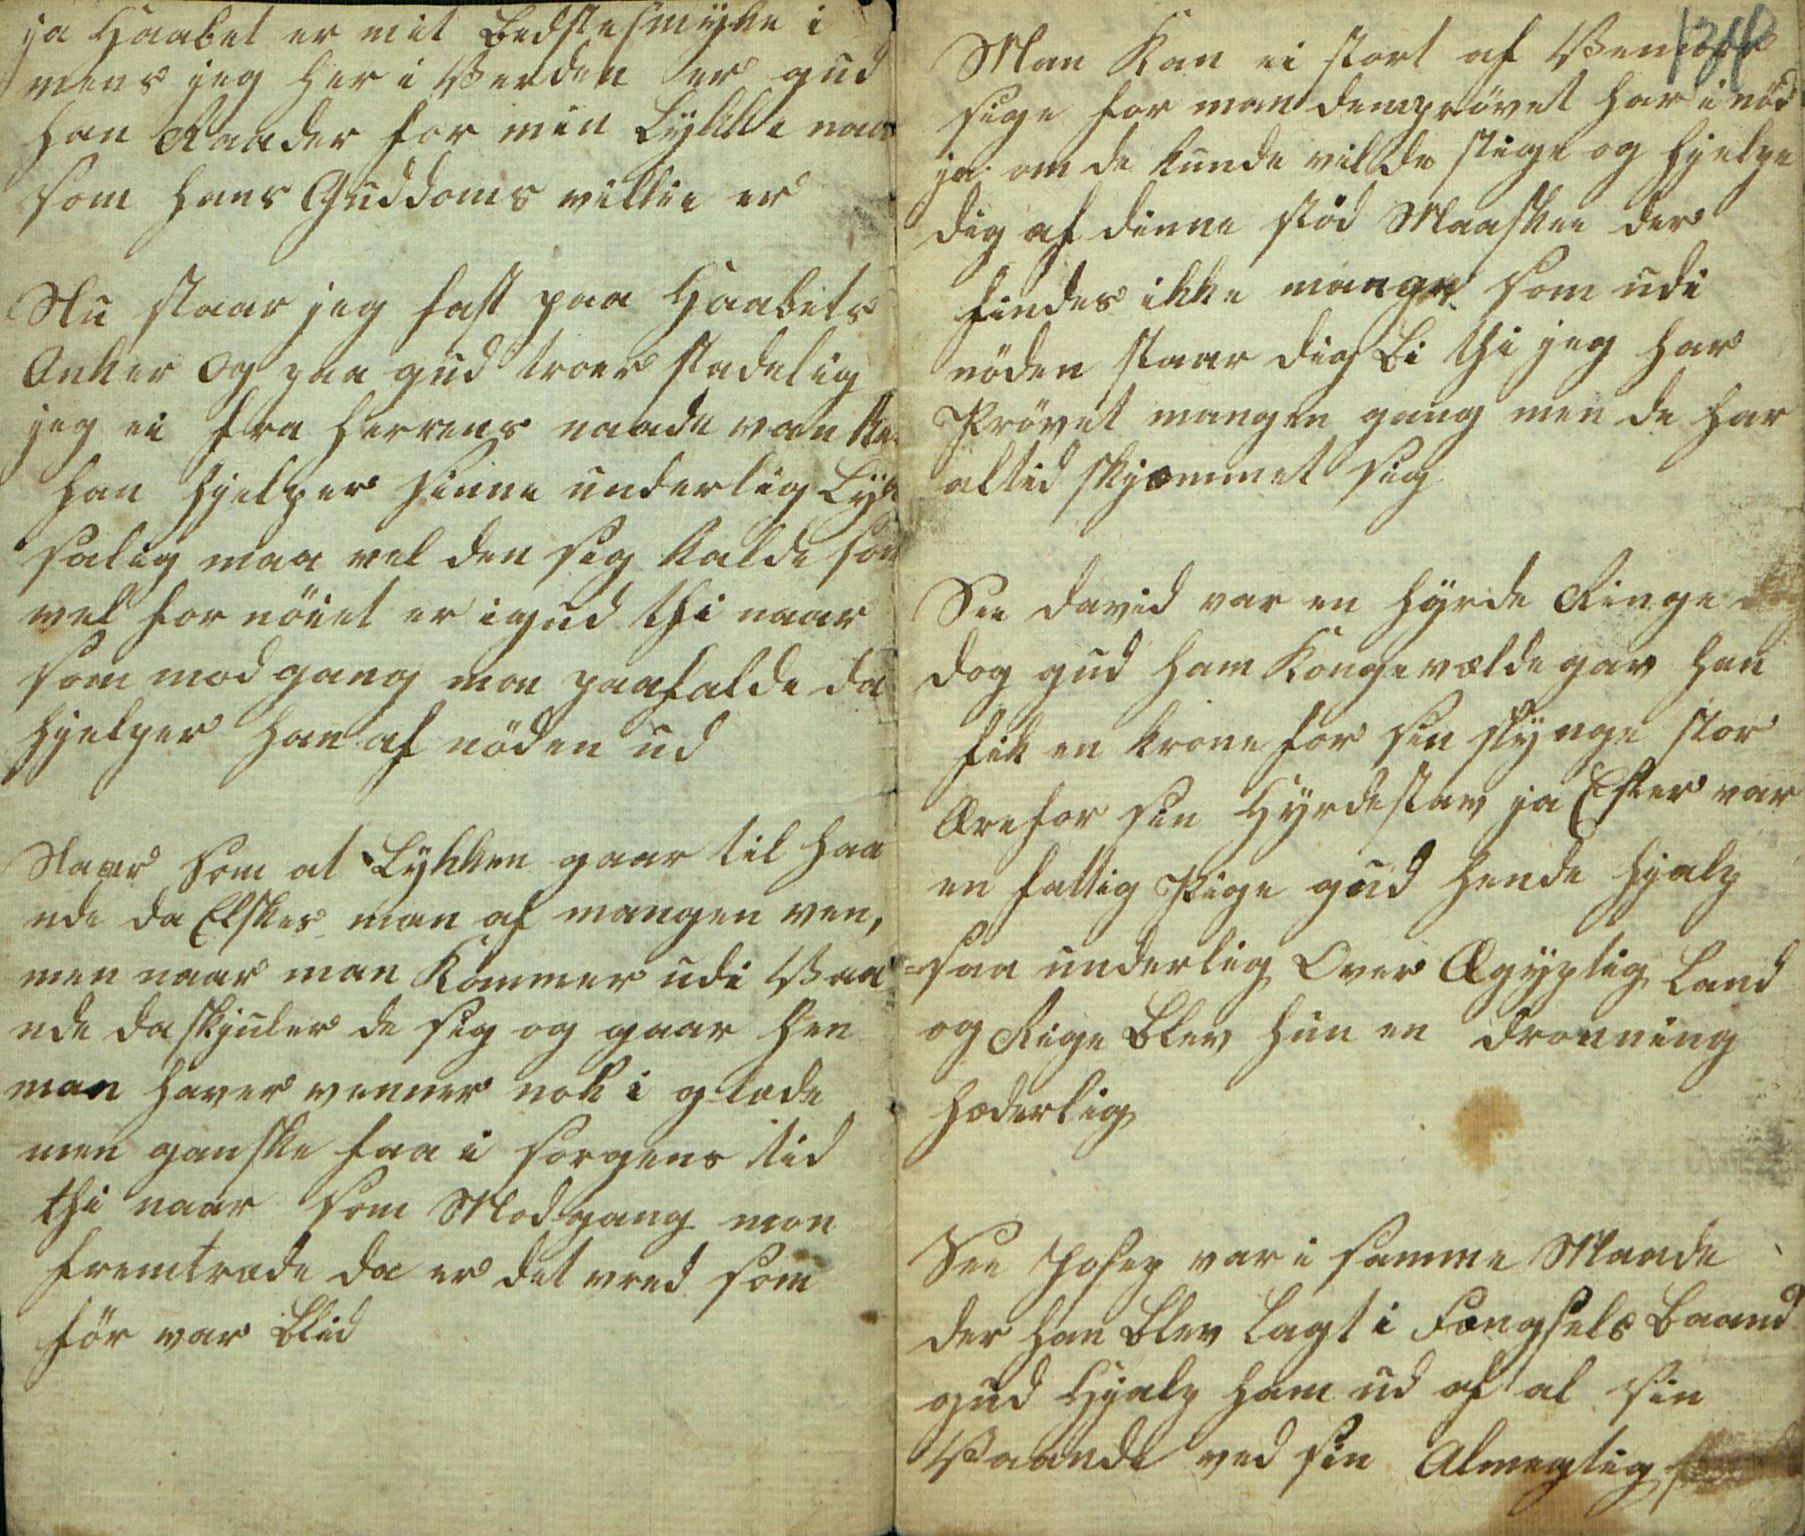 ja Haabet er mit Bedstesmykke i
mens jeg her i Verden er gud
han Raader for min Lykke naar
som hans Guddoms villie er
Nu staar jeg fast paa Haabets
Anker og paa gud troer stadelig
jeg ei fra Herrens naade vanke
han hjelper sinne underlig Lyk
salig maa vel den sig kalde som
vel for nöiet er i gud thi naar
som modgang mon paafalde da
hjelper han af nöden ud
Naar som at Lykken gaar til haa
nde da Elskes man af mangen ven,
men naar man Kommer udi Vaa
nde da skjuler de sig og gaar hen
man haver venner nok i glæde
men ganske faa i sorgens tid
thi naar som Modgang mon
fremtræde da er det vred som
för var Blid
134
Man Kan ei stort af Venner
sige for man dem prövet har i nöd
ja om de kunde vilde stige og hjelpe
dig af dinne stöd Maaskee der
findes ikke mange som udi
nöden staar dig Bi thi jeg har
Prövet mangen gang men de har
altid skjæmmet sig
See david var en hyrde Ringe
dog gud ham Kongevælde gav han
fik en krone for sin slynge stor
Ære for sin Hyrdestav ja Ester var
en fattig Pige gud hende hjalp
saa underlig Over Ægyptig Land
og Rige Blev hun en dronning
hæderlig
See Josep var i samme Maade
der han Blev Lagt i Fængsels Baand
gud Hjalp ham ud af al sin
Vaande ved sin Almegtig